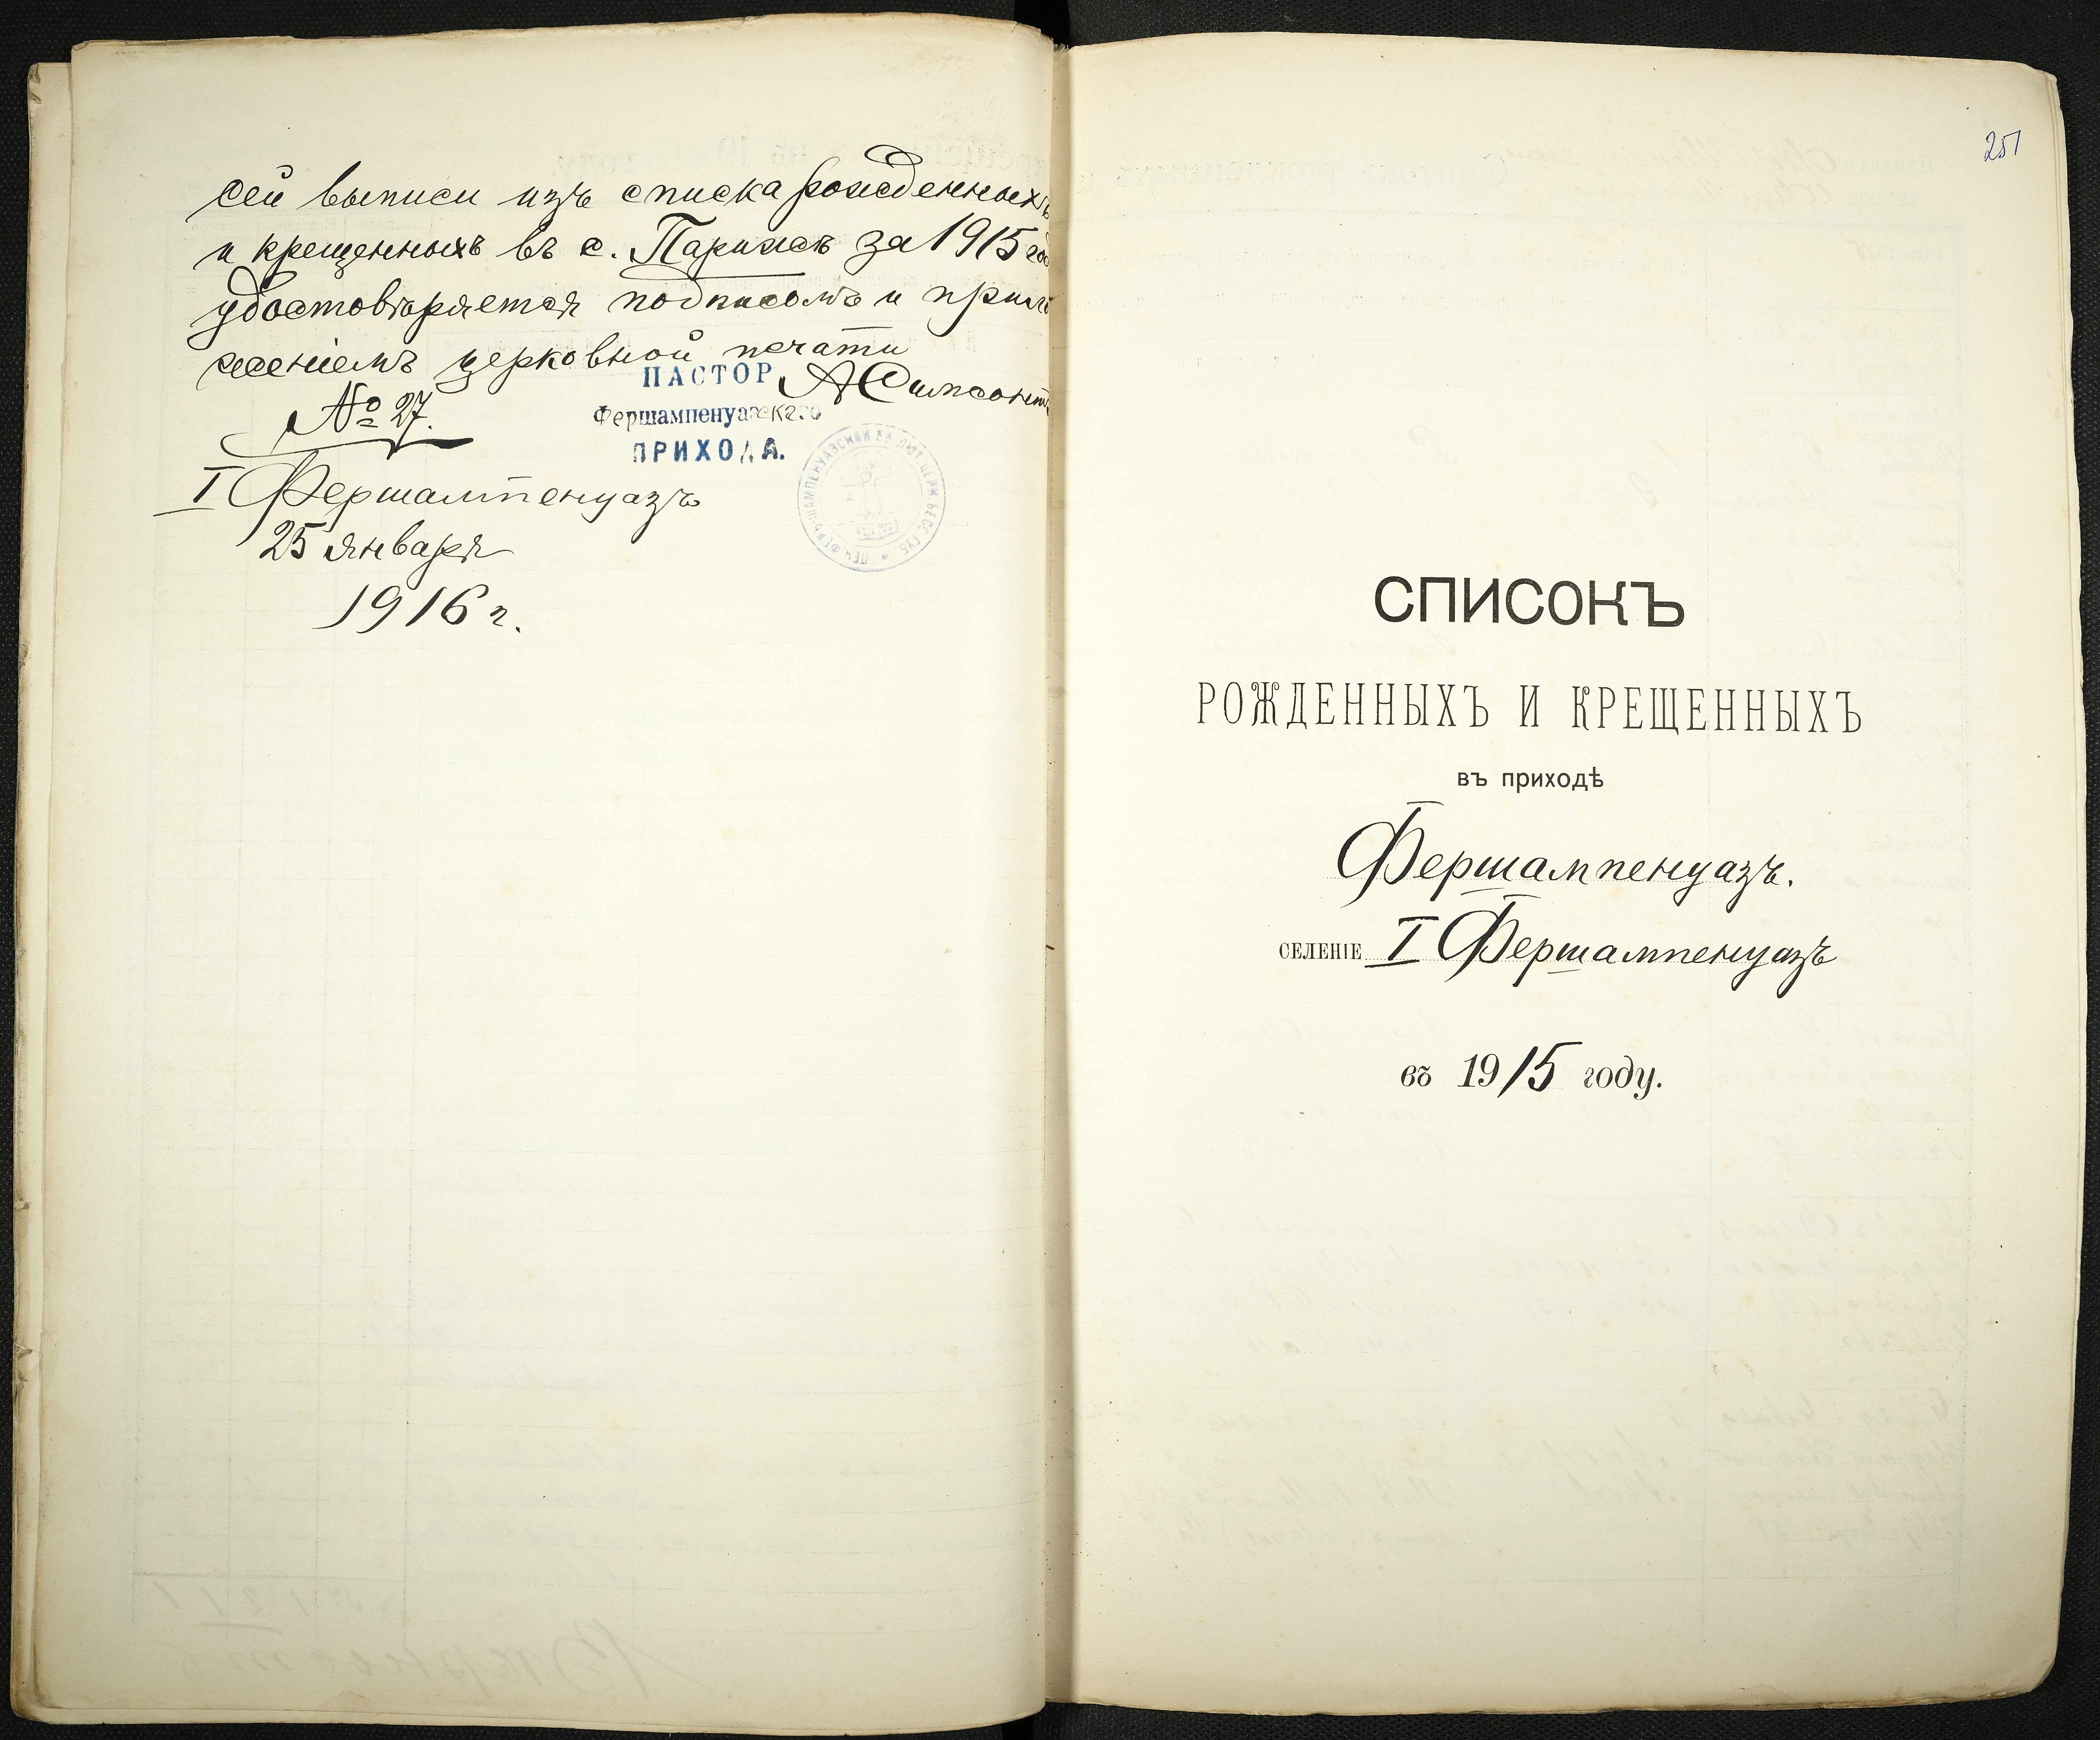 сей выписи изъ списка рожденныхъ
и крещенныхъ въ с. Парижѣ за 1915 год
удостовѣряется подписомъ и прило
женіемъ церковной печати
ПАСТОР АСимсонъ
№ 27.
Фершампенуазскаго
ПРИХОДА.
ПЕЧ ФЕРШАМПЕНУАЗСКОЙ ЕВ ЛЮТ ЦЕРК БЕСС ГУБ
I Фершампенуазъ
25 января
1916 г.
251
СПИСОКЪ
РОЖДЕННЫХЪ И КРЕЩЕННЫХЪ
въ приходѣ
Фершампенуазъ.
СЕЛЕНІЕ I Фершампенуазъ
въ 1915 году.